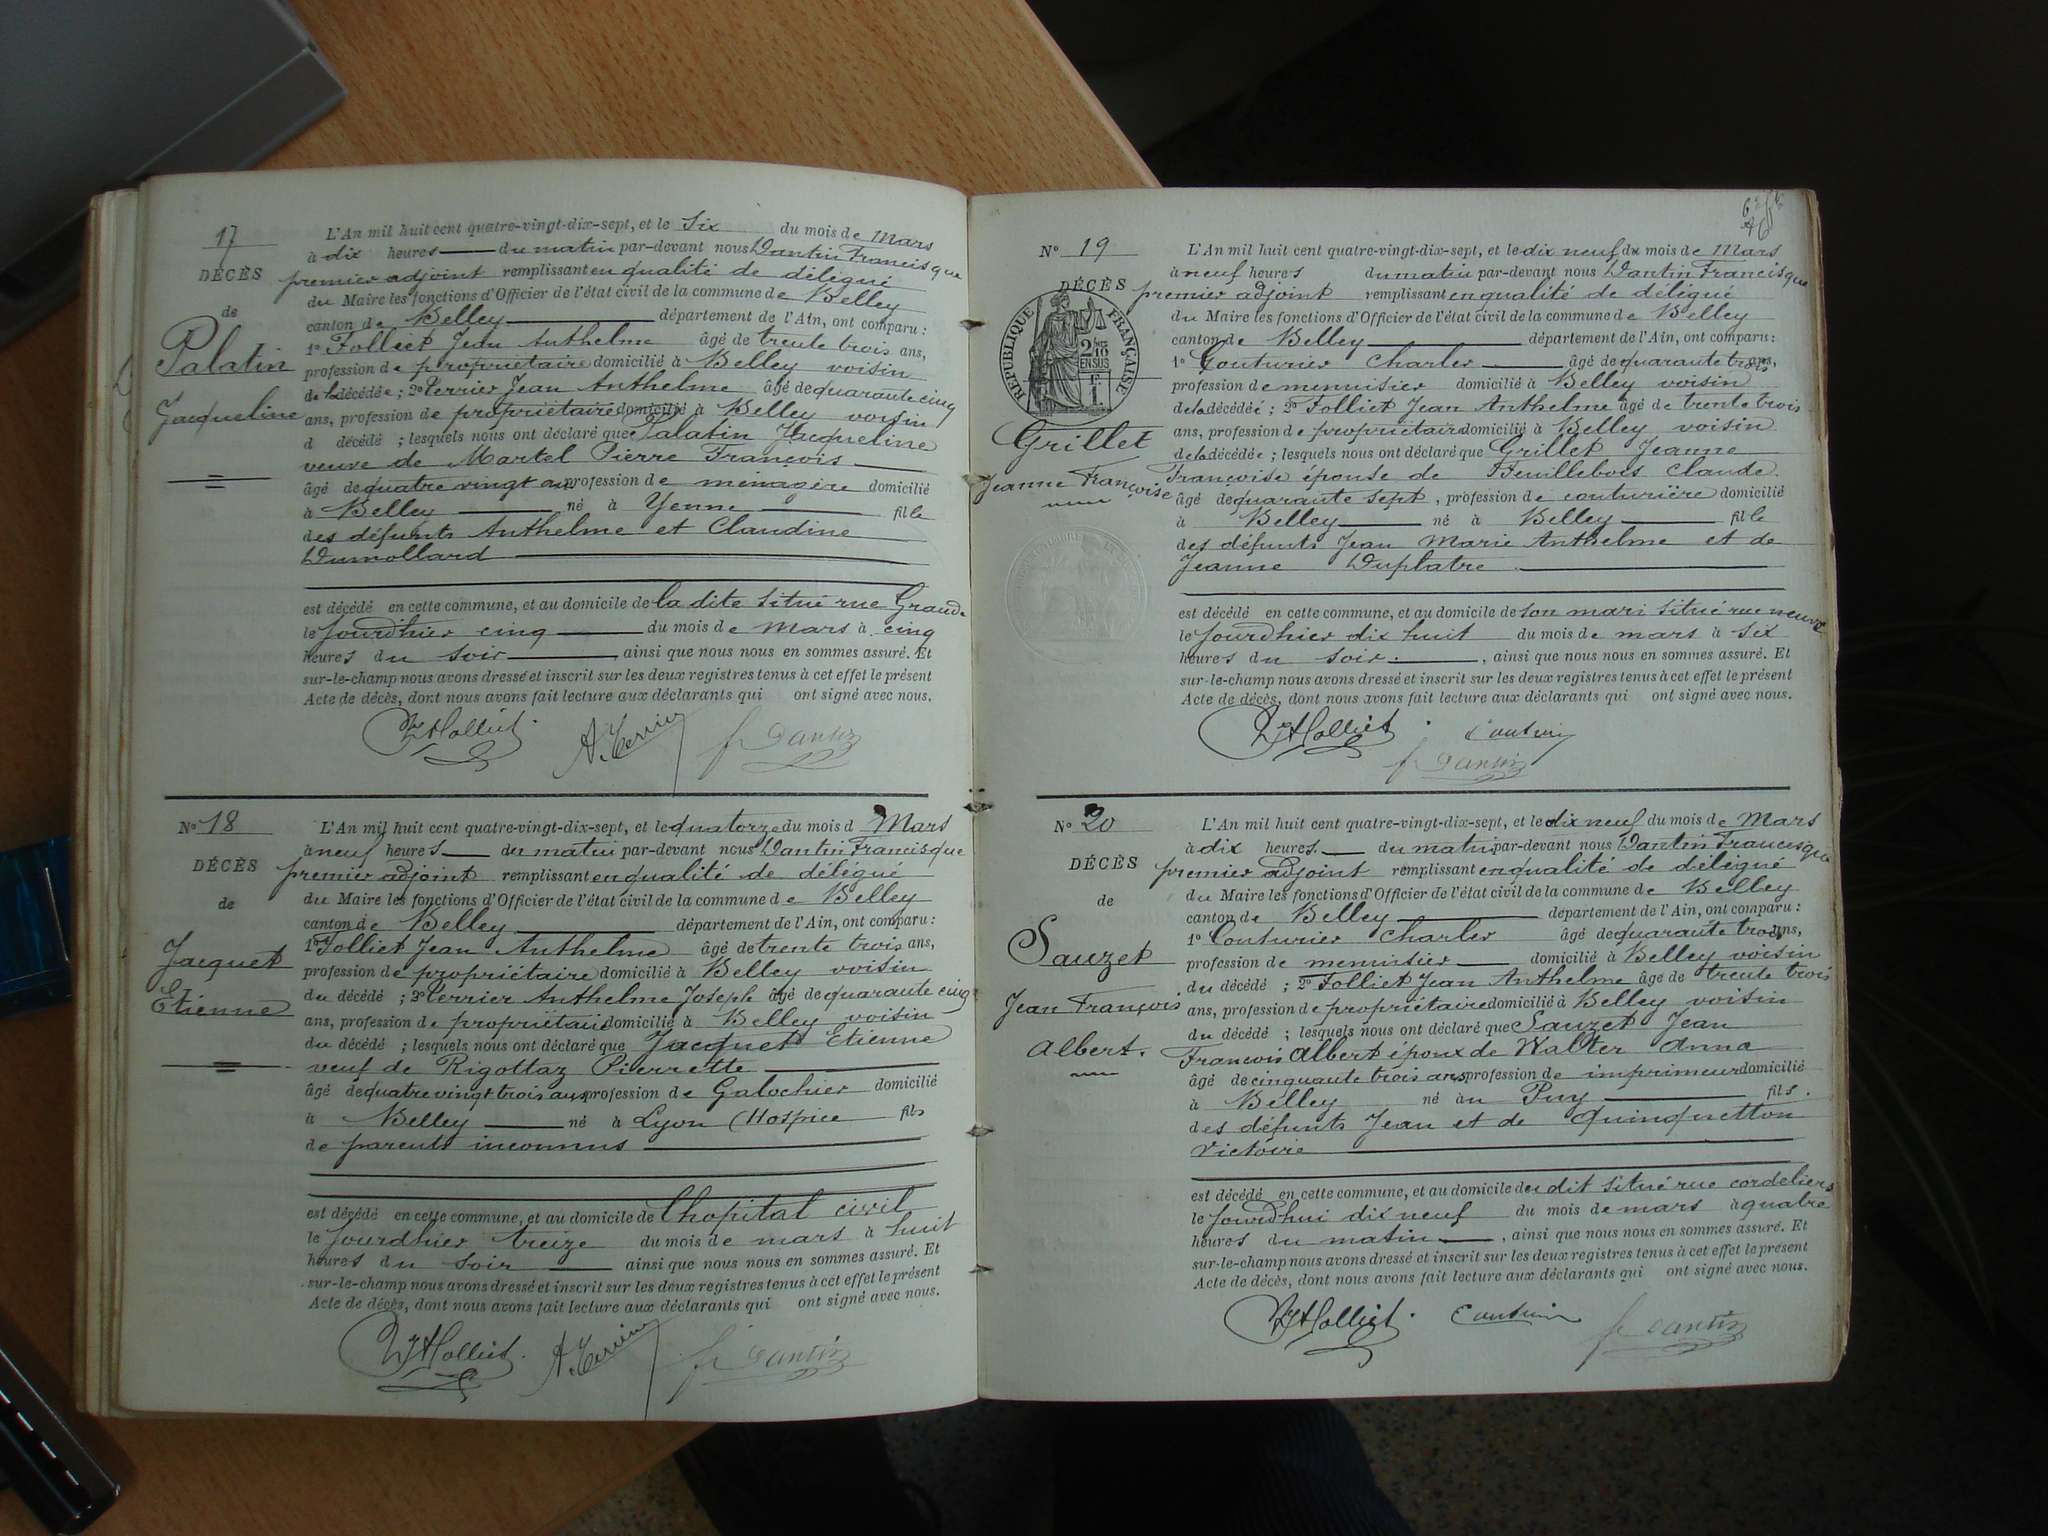 17
DÉCÈS
de
Palatin
Jacqueline
L'An mil huit cent quatre-vingt-dix-sept, et le six du mois de Mars
à dix heures du matin par-devant nous Dantin Francisque
premier adjoint remplissant en qualité de délégué
du Maire les fonctions d'Officier de l'état civil de la commune de Belley
canton de Belley département de l'Ain, ont comparu :
1° Folliet Jean Anthelme âgé de trente trois ans,
profession de propriétaire domicilié à Belley voisin
de la décédée ; 2° Terrier Jean Anthelme âgé de quarante cinq
ans, profession de propriétaire domicilié à Belley voisin
d décédé ; lesquels nous ont déclaré que Palatin Jacqueline
veuve de Martel Pierre François
âgé de quatre vingt ans profession de ménagère domicilié
à Belley né à Yenne fille
des défunts Anthelme et Claudine
Dumollard
est décédé en cette commune, et au domicile de la dite situé rue Grande
le jourdhier cinq du mois de mars à cinq
heures du soir ainsi que nous nous en sommes assuré. Et
sur-le-champ nous avons dressé et inscrit sur les deux registres tenus à cet effet le présent
Acte de décès, dont nous avons fait lecture aux déclarants qui ont signé avec nous.
JAFolliet A. Terrier fr Dantin
N° 18
DÉCÈS
de
Jacquet
Etienne
L'An mil huit cent quatre-vingt-dix-sept, et le quatorze du mois d Mars
à neuf heures du matin par-devant nous Dantin Francisque
premier adjoint remplissant en qualité de délégué
du Maire les fonctions d'Officier de l'état civil de la commune de Belley
canton de Belley département de l'Ain, ont comparu :
1° Folliet Jean Anthelme âgé de trente trois ans,
profession de propriétaire domicilié à Belley voisin
du décédé ; 2° Terrier Anthelme Joseph âgé de quarante cinq
ans, profession de propriétaire domicilié à Belley voisin
du décédé ; lesquels nous ont déclaré que Jacquet Etienne
veuf de Rigottaz Pierrette
âgé de quatre vingt trois ans profession de Galochier domicilié
à Belley né à Lyon (Hospice fils
de parents inconnus
est décédé en cette commune, et au domicile de Lhopital civil
le jourdhier treize du mois de mars à huit
heures du soir ainsi que nous nous en sommes assuré. Et
sur-le-champ nous avons dressé et inscrit sur les deux registres tenus à cet effet le présent
Acte de décès, dont nous avons fait lecture aux déclarants qui ont signé avec nous.
JAFolliet A. Terrier fr Dantin
N° 19
DÉCÈS
RÉPUBLIQUE FRANÇAISE
2/10
EN SUS
Grillet
Jeanne Françoise
L'An mil huit cent quatre-vingt-dix-sept, et le dix neuf du mois de Mars
à neuf heures du matin par-devant nous Dantin Francisque
premier adjoint remplissant en qualité de délégué
du Maire les fonctions d'Officier de l'état civil de la commune de Belley
canton de Belley département de l'Ain, ont comparu :
1° Couturier Charles âgé de quarante trois ans,
profession de menuisier domicilié à Belley voisin
de la décédée ; 2° Folliet Jean Anthelme âgé de trente trois
ans, profession de propriétaire domicilié à Belley voisin
de la décédée ; lesquels nous ont déclaré que Grillet Jeanne
Françoise épouse de Feuillebois Claude
âgé de quarante sept, profession de couturière domicilié
à Belley né à Belley fille
des défunts Jean Marie Anthelme et de
Jeanne Duplatre
est décédé en cette commune, et au domicile de son mari situé rue neuve
le jourdhier dix huit du mois de mars à six
heures du soir, ainsi que nous nous en sommes assuré. Et
sur-le-champ nous avons dressé et inscrit sur les deux registres tenus à cet effet le présent
Acte de décès, dont nous avons fait lecture aux déclarants qui ont signé avec nous.
JAFolliet Couturier
fr Dantin
N° 20
DÉCÈS
de
Sauzet
Jean François
Albert.
L'An mil huit cent quatre-vingt-dix-sept, et le dix neuf du mois de Mars
à dix heures du matin par-devant nous Dantin Francisque
premier adjoint remplissant en qualité de délégué
du Maire les fonctions d'Officier de l'état civil de la commune de Belley
canton de Belley département de l'Ain, ont comparu :
1° Couturier Charles âgé de quarante trois ans,
profession de menuisier domicilié à Belley voisin
du décédé ; 2° Folliet Jean Anthelme âgé de trente trois
ans, profession de propriétaire domicilié à Belley voisin
du décédé ; lesquels nous ont déclaré que Sauzet Jean
François Albert époux de Walter Anna
âgé de cinquante trois ans profession de imprimeur domicilié
à Belley né au Puy fils.
des défunts Jean et de Quinquetton
Victoire
est décédé en cette commune, et au domicile du dit situé rue cordeliers
le jourdhui dix neuf du mois de mars à quatre
heures du matin, ainsi que nous nous en sommes assuré. Et
sur-le-champ nous avons dressé et inscrit sur les deux registres tenus à cet effet le présent
Acte de décès, dont nous avons fait lecture aux déclarants qui ont signé avec nous.
JAFolliet Couturier fr Dantin